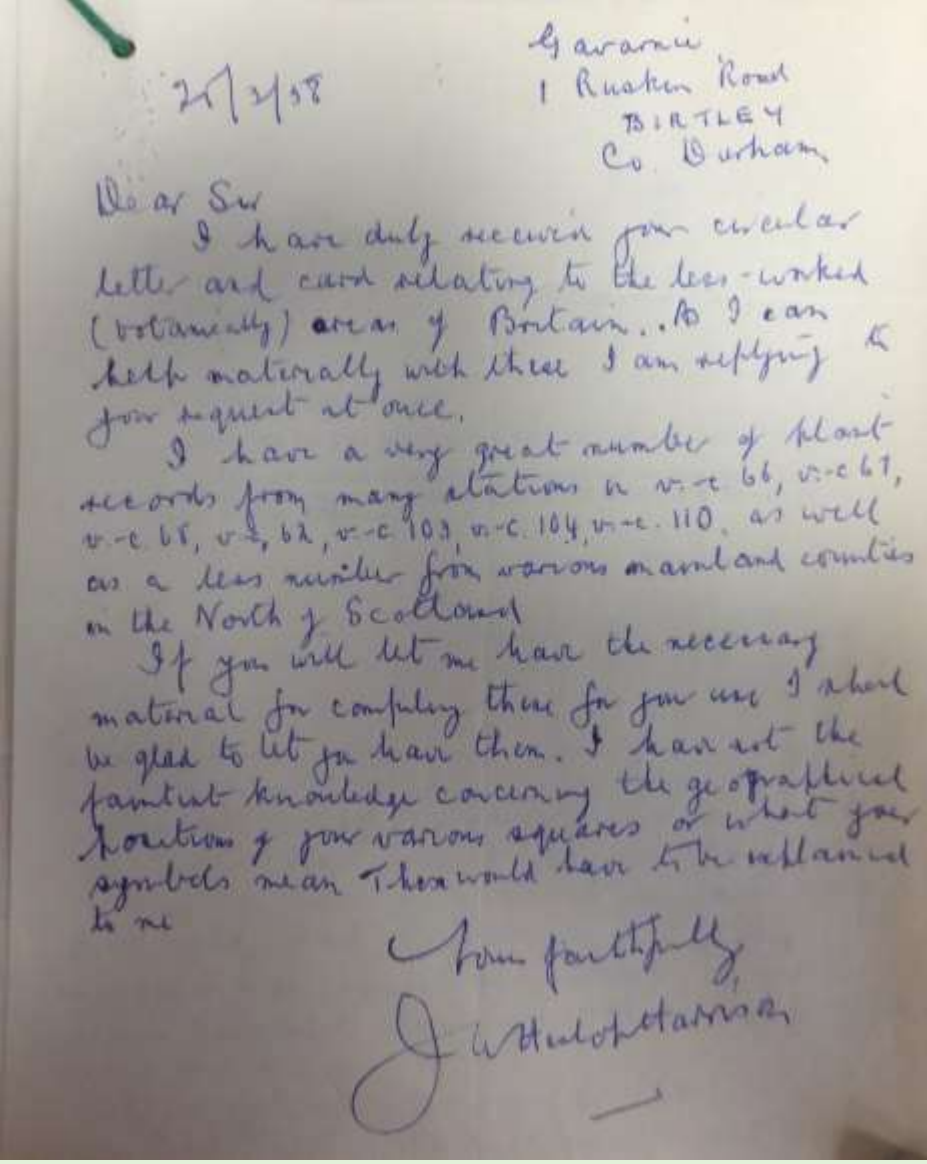 Gavarnie
1 Ruskin Road
BIRTLEY
Co. Durham
Dear Sir
I have duly received your circular
letter and card relating to the less-worked
(botanically) areas of Britain. As I can
help materially with these I am replying to
your request at once.
I have a very great number of plant
records from many stations in v.-c 66, v.-c 67,
v.-c. 68, v.-c. 62, v.-c. 103, v.-c. 104, v.-c. 110, as well
as a less number from various mainland counties
in the North of Scotland
If you will let me have the necessary
material for compiling these for your use I shall
be glad to let you have them. I have not the
faintest knowledge concerning the geographical
positions of your various squares or what your
symbols mean These would have to be explained
to me
Yours faithfully
J W Heslop Harrison